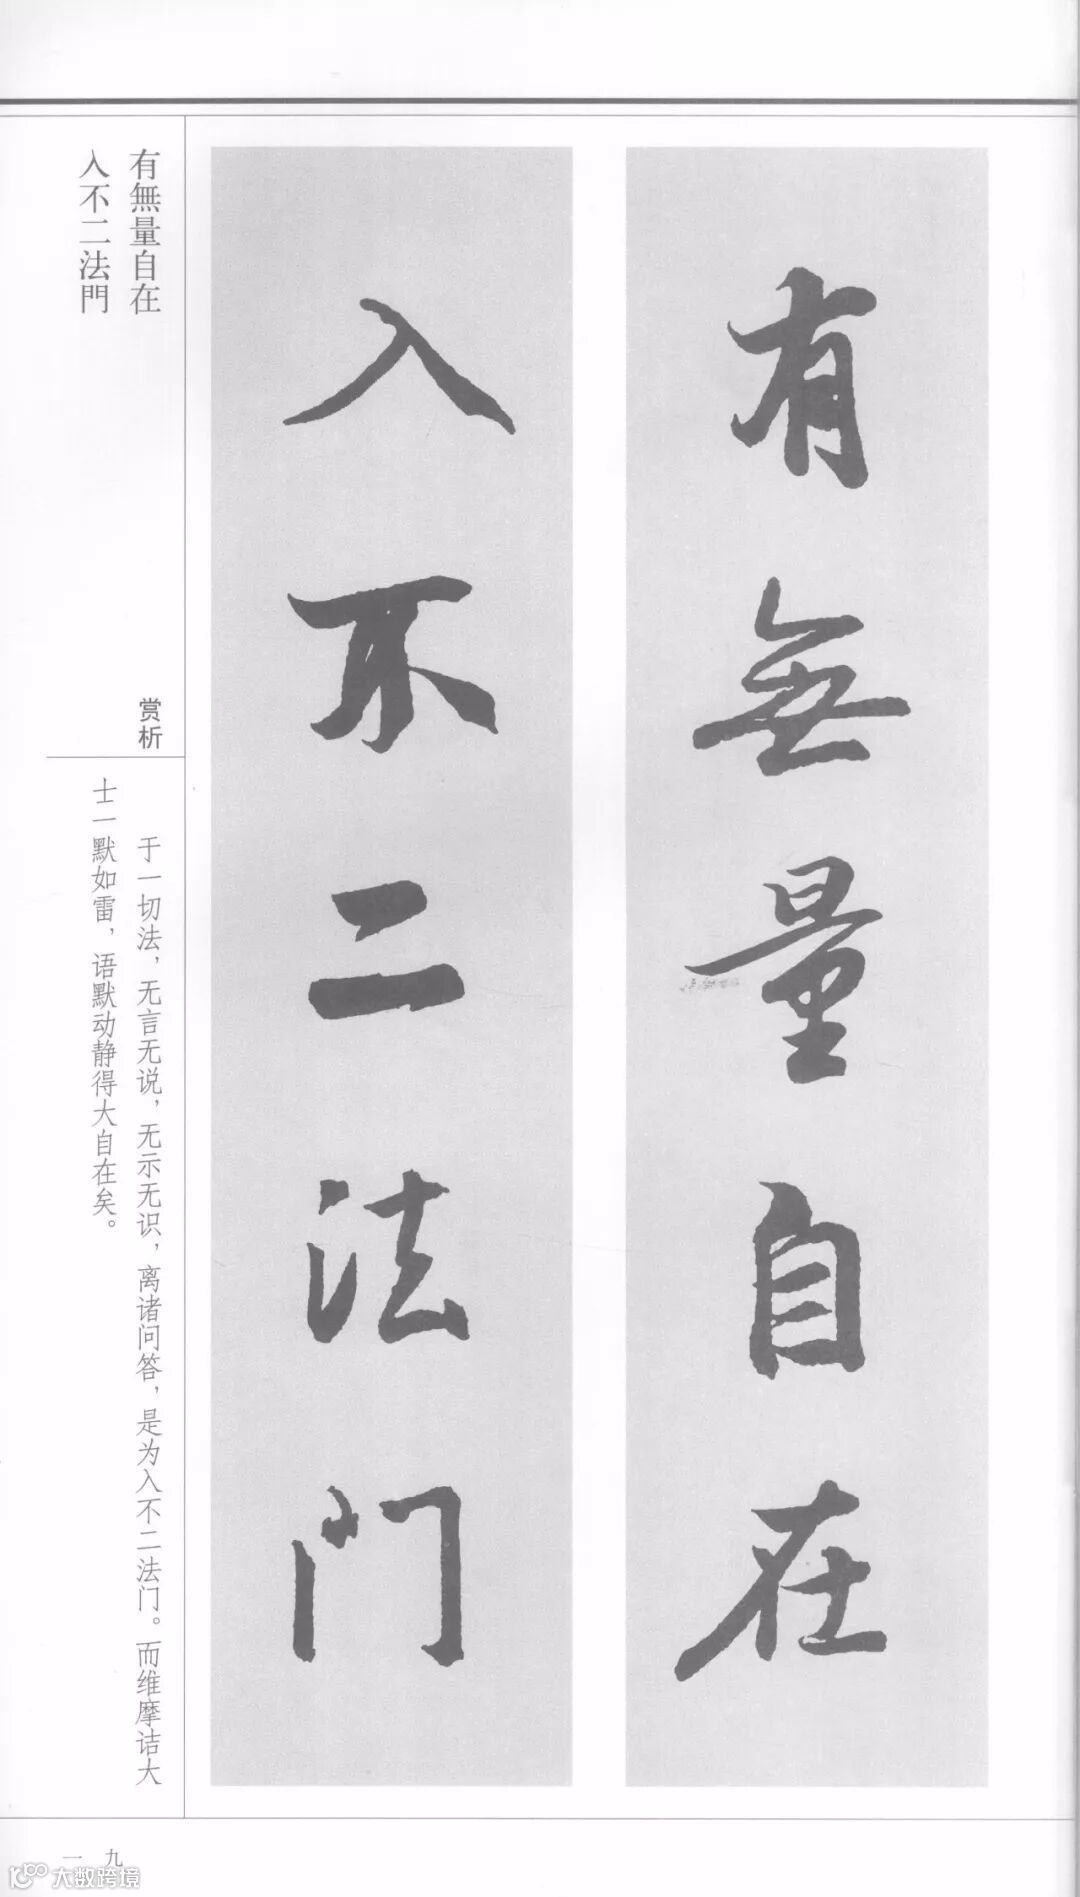 有無量自在
入不二法门
有無量自在
入不二法門
赏析
于一切法，无言无说，无示无识，离诸问答，是为入不二法门。而维摩诘大
士一默如雷，语默动静得大自在矣。
一九
大数跨境